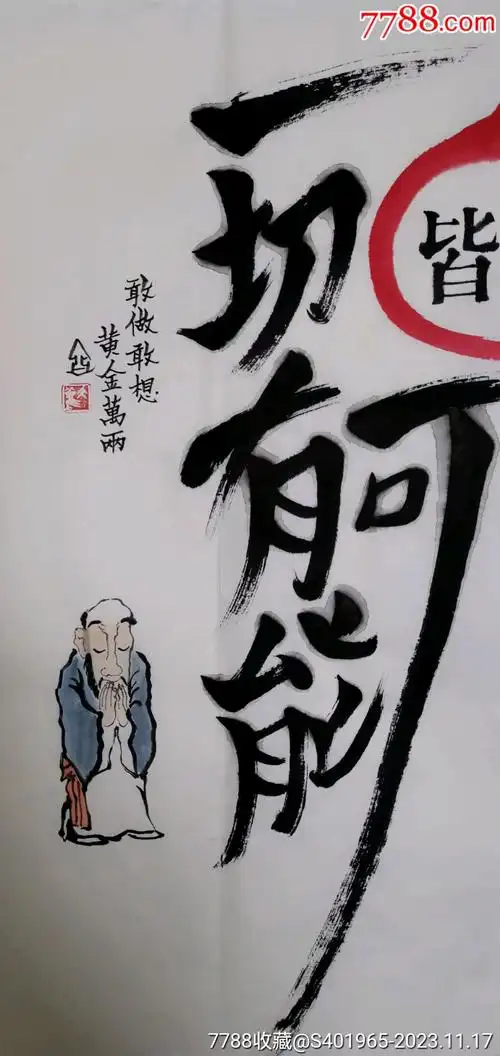 7788.com
一切皆有可能
敢做敢想
黄金萬兩
7788收藏@S401965-2023.11.17